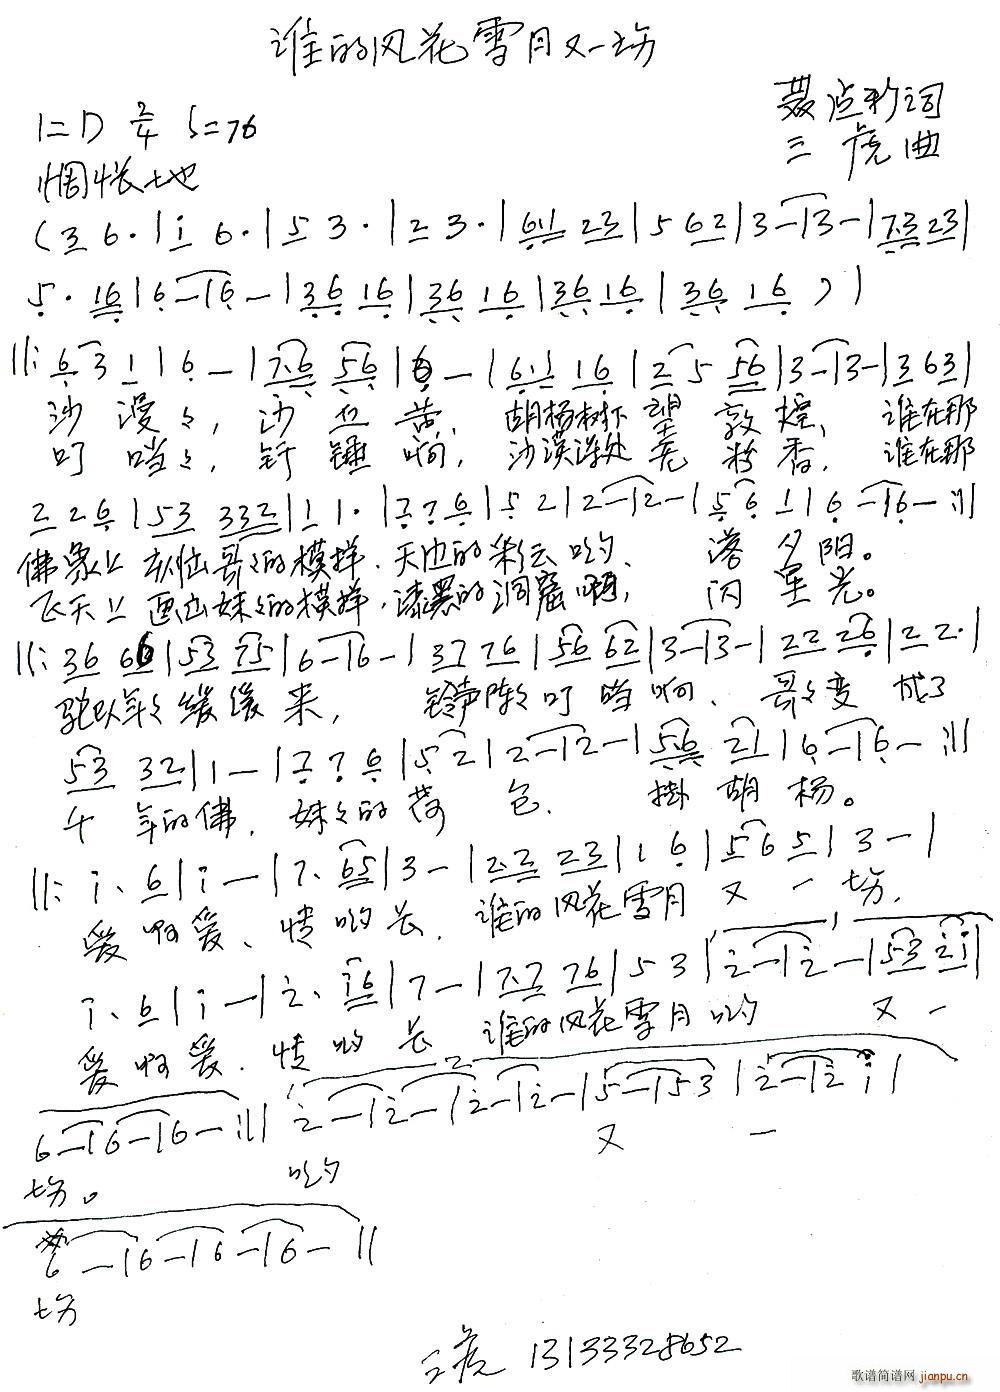 谁的风花雪月又一场
聂造彩词
1=D 2/4 ♩=76
三虎曲
惆怅地
(3 6·|i 6·|5 3·|2 3·|61 23|5 62|3-|3-|7·3 23|
5·16|6-|6-|36 16|36 16|36 16|36 16)|
||:6 3 1|6-|7·6 56|6-|6·1 16|2 5 56|3-|3-|3 63|
沙漫々,沙也苦,胡杨树下望敦煌,谁在那
叮当々,钎锤响,沙漠深处老粉香,谁在那
2 2 6|53 332|1 1·|7 7 6|5 2|2-|2-|5 6 1|6-|6-:||
佛象上 刻出哥々的模样.天边的彩云哟、落夕阳。
飞天上 画出妹々的模样,漆黑的洞窟啊,闪星光。
||:36 66|53 75|6-|6-|37 76|56 62|3-|3-|22 26|2 2·|
驼队年々缓缓来,铃声阵々叮当响、哥々变成了
53 32|1-|7 7 6|5 2|2-|2-|5·6 21|6-|6-:||
千年的佛.妹々的荷包.掛胡杨。
||:i·6|i-|7·65|3-|2·2 23|1 6|5 6 5|3-|
爱啊爱、情哟长.谁的风花雪月又一场,
i·6|i-|2·i6|7-|7·7 76|5 3|2-|2-|53 2i|
爱啊爱.情哟长 谁的风花雪月哟 又一
6-|6-|6-:|| 2-|2-|2-|2-|5-|5 3|2-|2 i|
场。哟 又一
6-|6-|6-|6-||
场
三虎 13133328652
歌谱简谱网
jianpu.cn